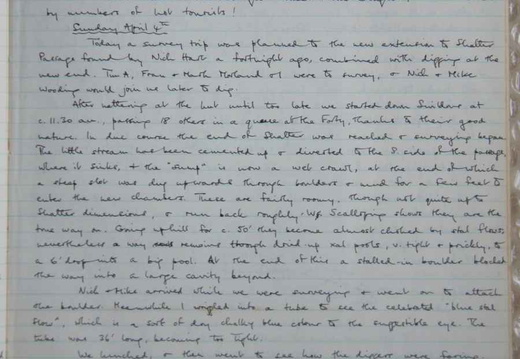 by numbers of hot tourists!
Sunday April 4th
Today a survey trip was planned to the new extension to Shatter
Passage found by Nich Hart a fortnight ago, combined with digging at the
new end. Tim A, Fran & Mark & I were to survey, & Nich & Mike
Wooding would join us later to dig.
After nattering at the hut until too late we started down Swildons at
c. 11.30 am, passing 18 others in a queue at the Forty, thanks to their good
nature. In due course the end of Shatter was reached & surveying began.
The little stream has been cemented up & diverted to the S. side of the passage,
where it sinks, & the "sump" is now a wet crawl, at the end of which
a steep slot was dug upwards through boulders & mud for a few feet to
enter the new chambers. These are fairly roomy, though not quite up to
Shatter dimensions, & run back roughly W. Scalloping shows they are the
true way on. Going uphill for c. 50' they become almost choked by stal flows,
nevertheless a way remains through dried-up xal pools, v. tight & prickly, to
a 6' drop into a big pool. At the end of this a stalled-in boulder blocked
the way into a large cavity beyond.
Nich & Mike arrived while we were surveying & went on to attack
the boulder. Meanwhile I wriggled into a tube to see the celebrated "blue stal
flow", which is a sort of day chalky blue colour to the suggestible eye. The
tube was 36' long, becoming too tight.
We lunched, & then went to see how the diggers were faring